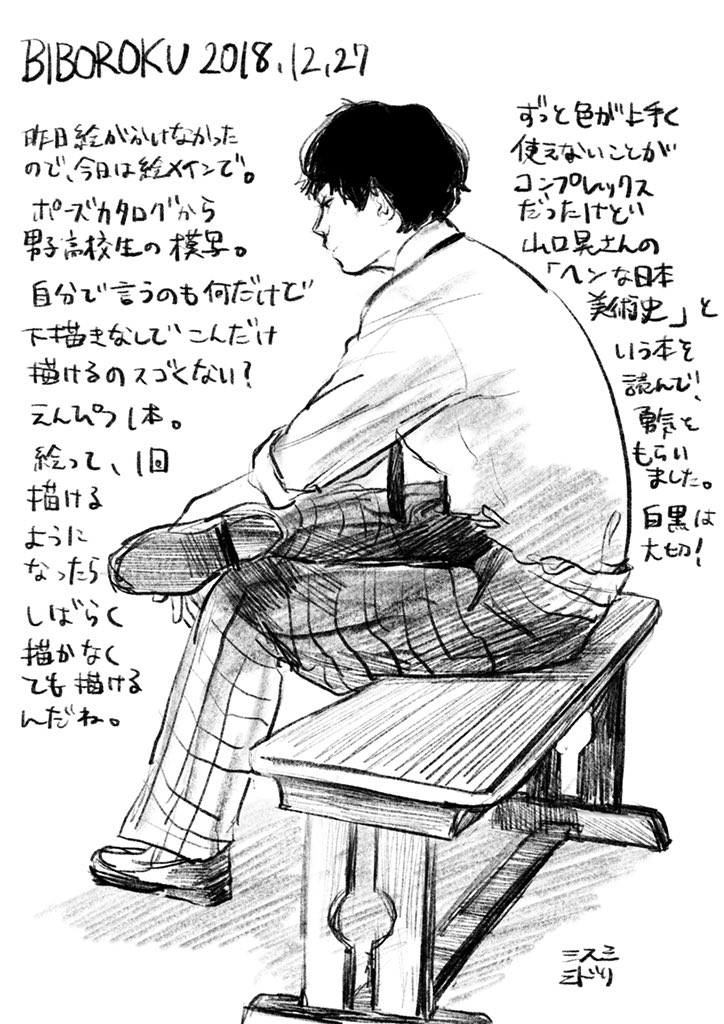 BIBOROKU 2018.12.27
昨日絵がかけなかった
ので、今日は絵メインで。
ポーズカタログから
男子高校生の模写。
自分で言うのも何だけど
下描きなしでこんだけ
描けるのスゴくない?
えんぴつ1本。
絵って、1回
描ける
ように
なったら
しばらく
描かなく
ても描ける
んだね。
ずっと色が上手く
使えないことが
コンプレックス
だったけど
山口晃さんの
「ヘンな日本
美術史」と
いう本を
読んで、
勇気を
もらい
ました。
白黒は
大切!
ミスミ
ミドリ